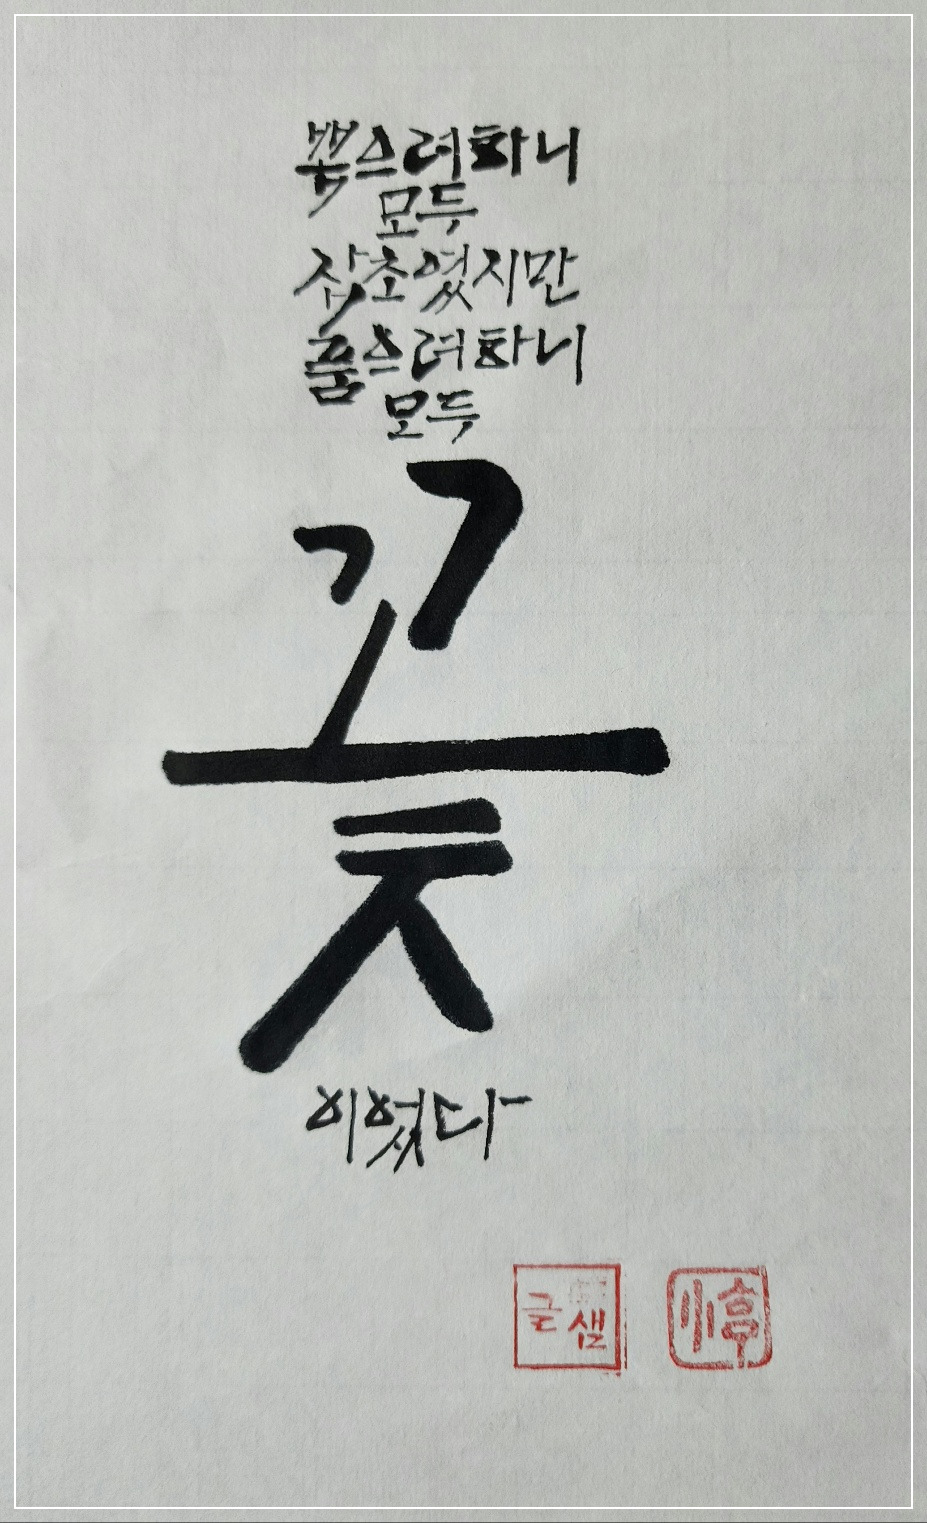 뽑으려하니
모두
잡초였지만
품으려하니
모두
꽃
이었다
글샘
惇